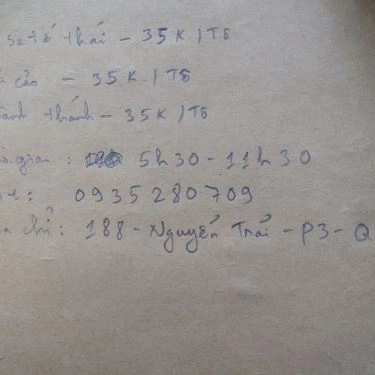 sa tế thái - 35K/Tô
cảo - 35K/Tô
thánh - 35K/Tô
gian: 5h30 - 11h30
t: 0935280709
chỉ: 188 - Nguyễn Trãi - P3 - Q